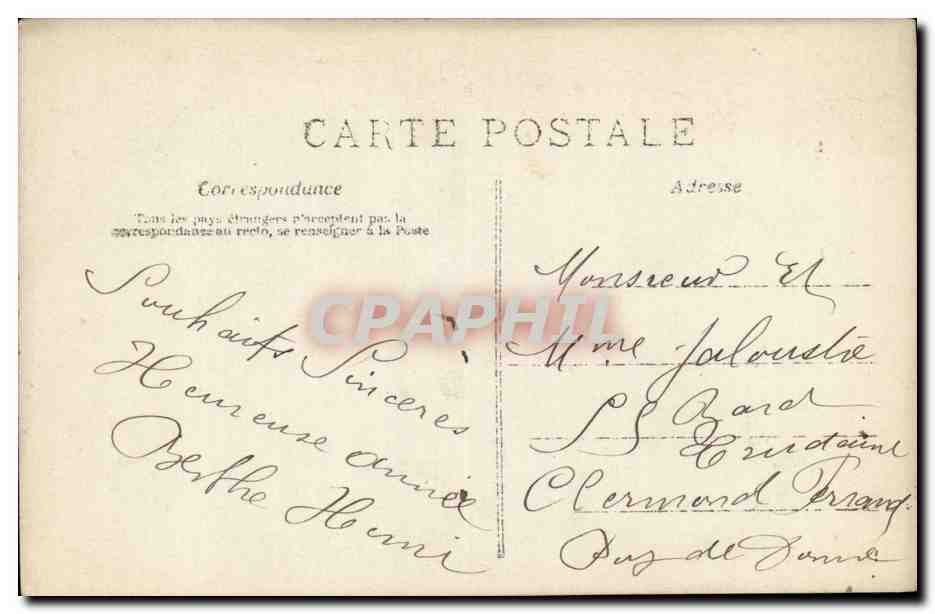 CARTE POSTALE
Correspondance
Tous les pays étrangers n'acceptent pas la
correspondance au recto, se renseigner à la Poste
Souhaits Sinceres
Heureuse année
Berthe Henri
Adresse
Monsieur Et
Mme Jaloustre
55 Bard
Trudaine
Clermond Ferrand
Puy de Dome
CPAPHIL